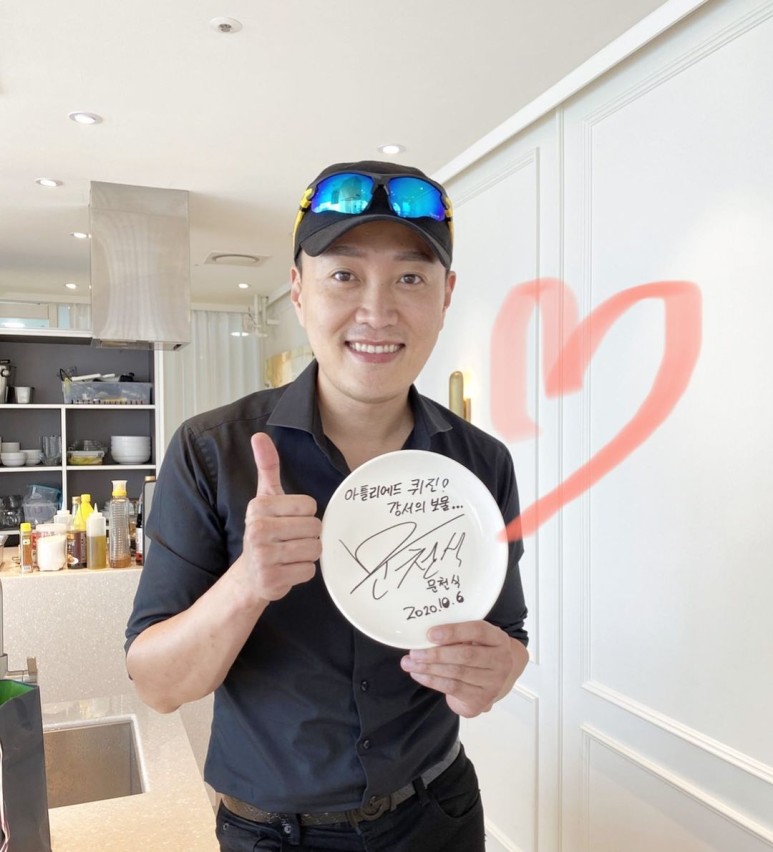 아뜰리에드 퀴진!
강서의 보물...
문천식
문천식
2020.10.6